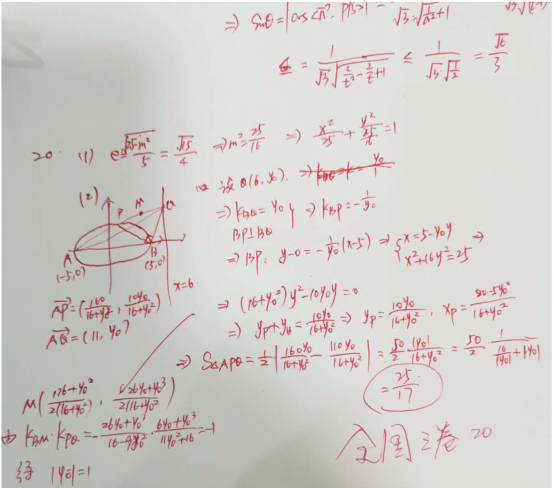 ⇒ sinθ = |cos<n, PB>| =
√3·√(1/t²+1)
= 1/(√3·√(2/t²-2/t+1)) ≤ 1/(√3·√(1/2)) = √6/3
20. (1) e = √(25-m²)/5 = √15/4 ⇒ m² = 25/16 ⇒ x²/25 + y²/(25/16) = 1
(2) 设Q(6, y₀). ⇒
⇒ k_BQ = y₀ } ⇒ k_BP = -1/y₀
BP⊥BQ
⇒ BP: y-0 = -1/y₀(x-5) ⇒ { x=5-y₀y
x²+16y²=25 ⇒
P M Q
A B
(-5,0) (5,0)
x=6
⇒ (16+y₀²)y²-10y₀y=0
AP = (160/(16+y₀²), 10y₀/(16+y₀²))
AQ = (11, y₀)
⇒ y_P+y_B = 10y₀/(16+y₀²) ⇒ y_P = 10y₀/(16+y₀²), x_P = (80-5y₀²)/(16+y₀²)
⇒ S△APQ = 1/2|160y₀/(16+y₀²) - 110y₀/(16+y₀²)| = 50/2·|y₀|/(16+y₀²) = 50/2·1/(16/|y₀|+|y₀|)
= 25/17
M((176+y₀²)/(2(16+y₀²)), (26y₀+y₀³)/(2(16+y₀²)))
由 k_BM·k_PQ = -(26y₀+y₀³)/(16-9y₀²)·(6y₀+y₀³)/(11y₀²+16) = -1
得 |y₀|=1
全国3卷 20